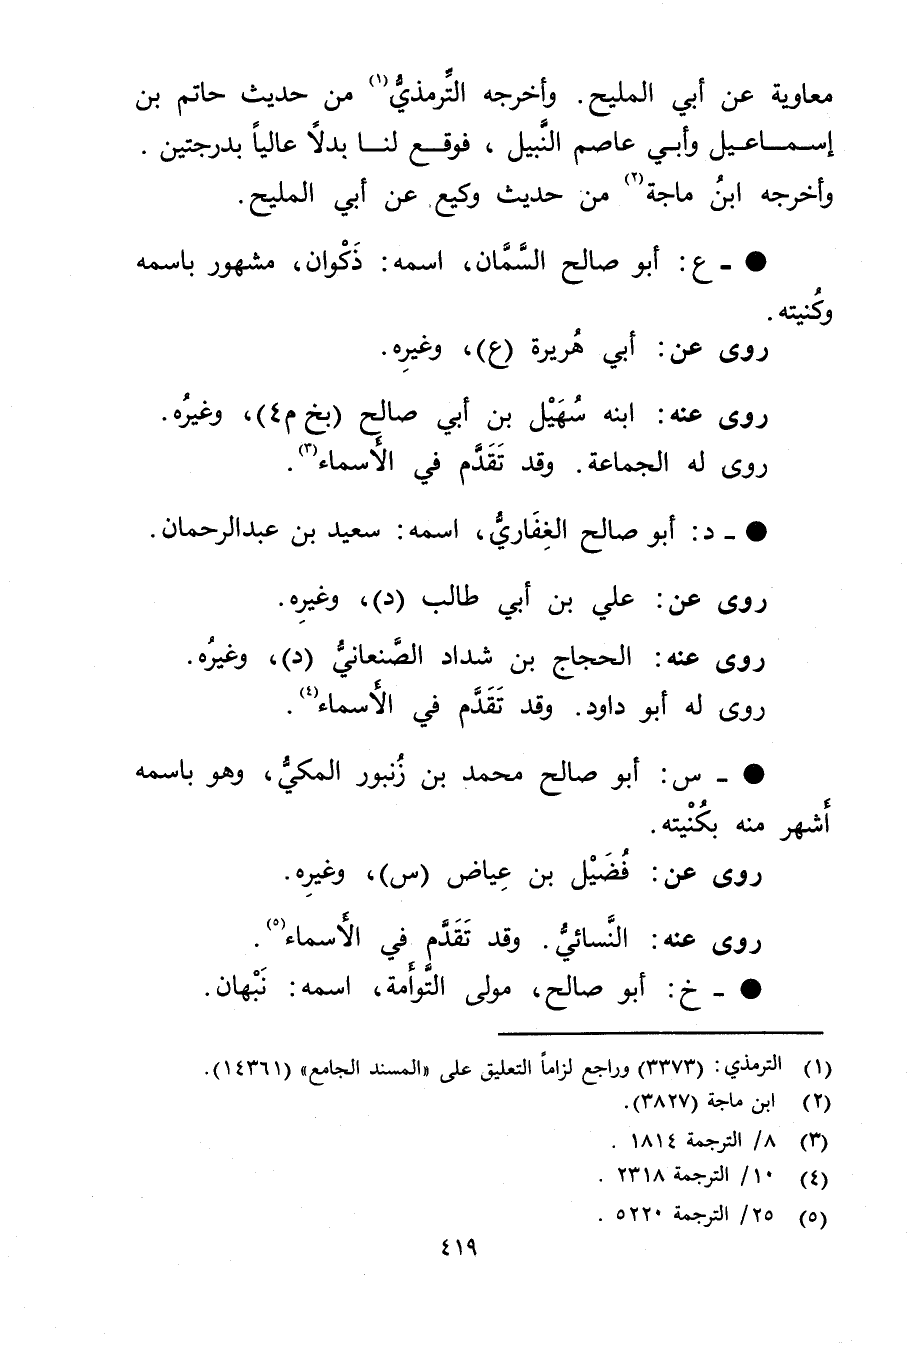 معاوية عن أبي المليح. وأخرجه التِّرمذيُّ(١) من حديث حاتم بن
إسماعيل وأبي عاصم النَّبيل ، فوقع لنا بدلاً عالياً بدرجتين .
وأخرجه ابنُ ماجة(٢) من حديث وكيع عن أبي المليح.
● ـ ع: أبو صالح السَّمَّان، اسمه: ذَكْوان، مشهور باسمه
وكُنيته.
روى عن: أبي هُريرة (ع)، وغيرِه.
روى عنه: ابنه سُهَيْل بن أبي صالح (بخ م٤)، وغيرُه.
روى له الجماعة. وقد تَقَدَّم في الأَسماء(٣).
● ـ د: أبو صالح الغِفَاريُّ، اسمه: سعيد بن عبدالرحمان.
روى عن: علي بن أبي طالب (د)، وغيرِه.
روى عنه: الحجاج بن شداد الصَّنعانيُّ (د)، وغيرُه.
روى له أبو داود. وقد تَقَدَّم في الأَسماء(٤).
● ـ س: أبو صالح محمد بن زُنبور المكيُّ، وهو باسمه
أَشهر منه بكُنْيته.
روى عن: فُضَيْل بن عِياض (س)، وغيرِه.
روى عنه: النَّسائيُّ. وقد تَقَدَّم في الأَسماء(٥).
● ـ خ: أبو صالح، مولى التَّوأَمة، اسمه: نَبْهان.
(١) الترمذي: (٣٣٧٣) وراجع لزاماً التعليق على «المسند الجامع» (١٤٣٦١).
(٢) ابن ماجة (٣٨٢٧).
(٣) ٨/ الترجمة ١٨١٤ .
(٤) ١٠/ الترجمة ٢٣١٨ .
(٥) ٢٥/ الترجمة ٥٢٢٠ .
٤١٩